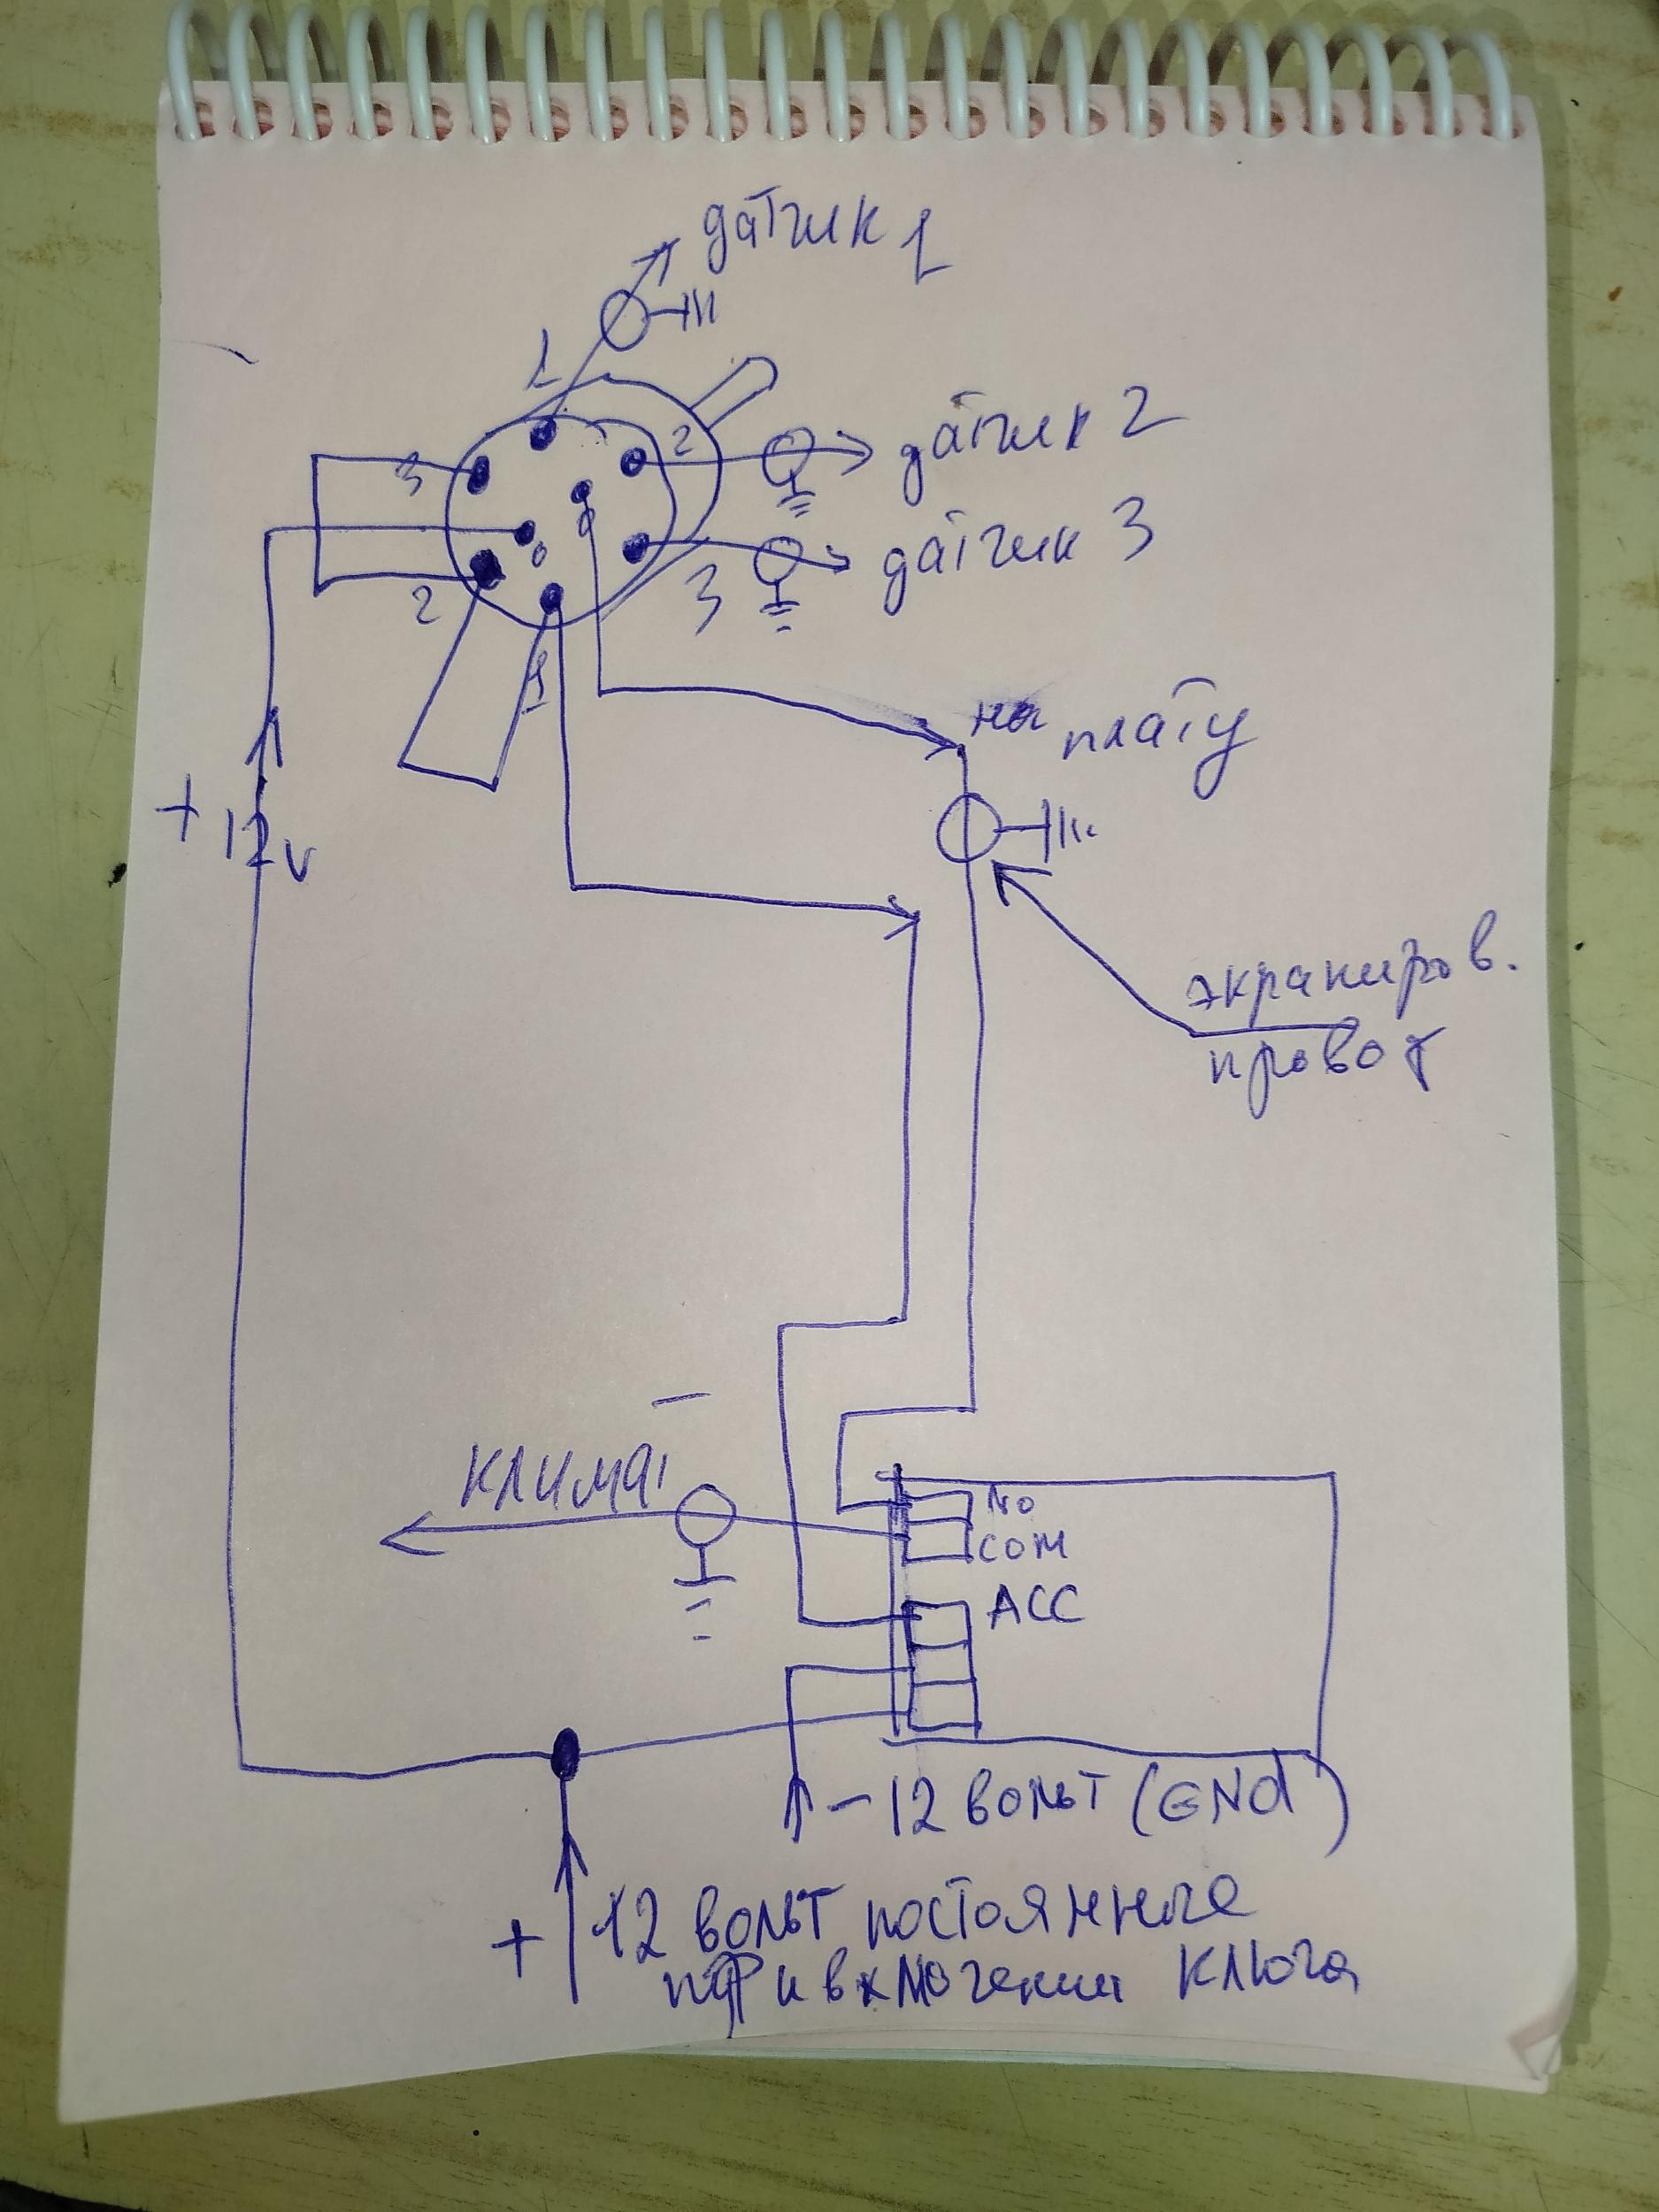 датчик 1
1
2
датчик 2
3
датчик 3
0
0
2
3
1
на плату
+12v
экраниров.
провод
климат
NO
COM
ACC
-12 вольт (GNd)
+ 12 вольт постоянное
при включении ключа